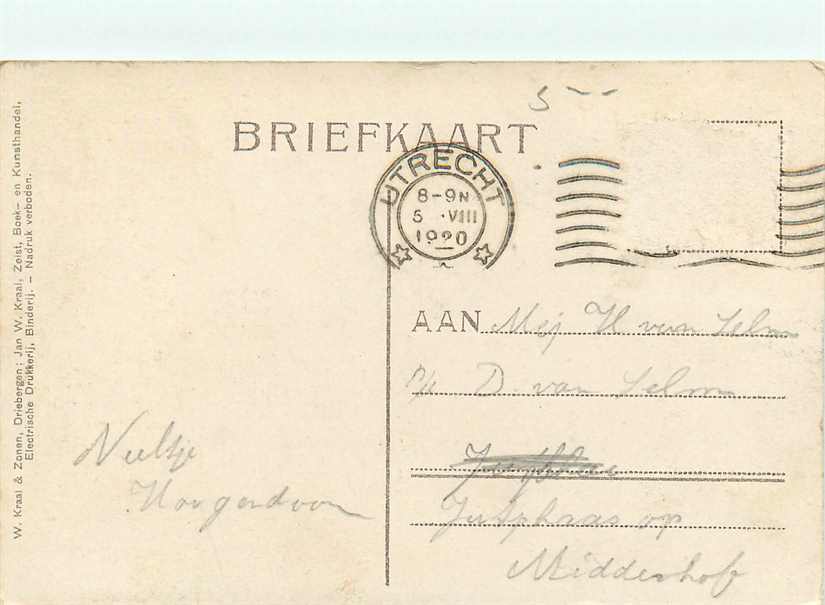 BRIEFKAART
5
UTRECHT
8-9N
5 VIII
1920
AAN Mej H van Selm
p/a D. van Selm
Jutphaas op
Middenhof
Neeltje
Hoogendoorn
W. Kraal & Zonen, Driebergen; Jan W. Kraal, Zeist, Boek- en Kunsthandel,
Electrische Drukkerij, Binderij. - Nadruk verboden.